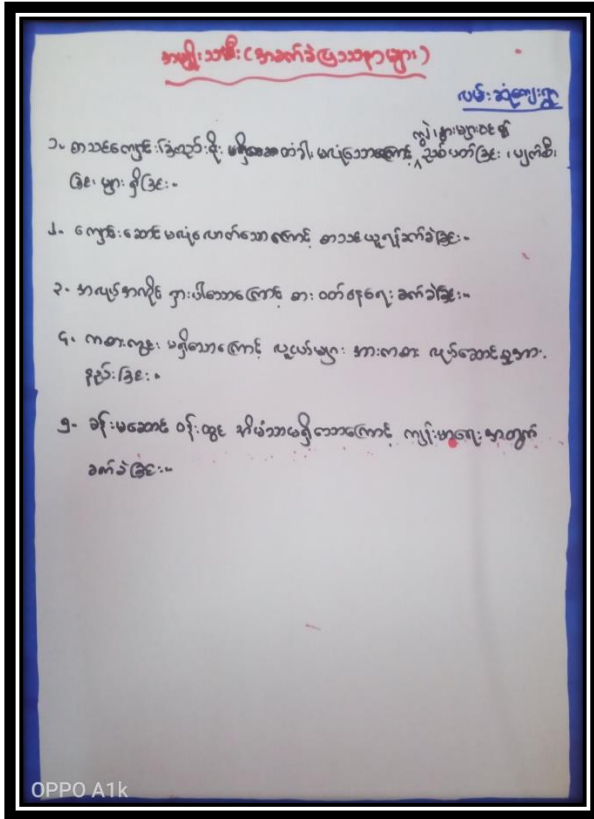 အမျိုးသမီး (အခက်ခဲပြဿနာများ)
လမ်းဆုံကျေးရွာ
၁- စာသင်ကျောင်းခြံစည်းရိုး မရှိ တံခါး မလုံသောကြောင့် ကျွဲ၊ နွားများဝင်၍ ညစ်ပတ်ခြင်း ၊ ပျက်စီး
ခြင်း များ ရှိခြင်း။
၂- ကျောင်းဆောင် မလုံလောက်သောကြောင့် စာသင်ယူရန်ခက်ခဲခြင်း။
၃- အလုပ်အကိုင် ရှားပါးသောကြောင့် စား ဝတ်နေရေး ခက်ခဲခြင်း။
၄- ကစားကွင်း မရှိသောကြောင့် လူငယ်များ အားကစား လုပ်ဆောင်မှုအား
နည်းခြင်း။
၅- ခန်းမဆောင် ဝန်းထွင် အိမ်သာမရှိသောကြောင့် ကျန်းမာရေးအတွက်
ခက်ခဲခြင်း။
OPPO A1k